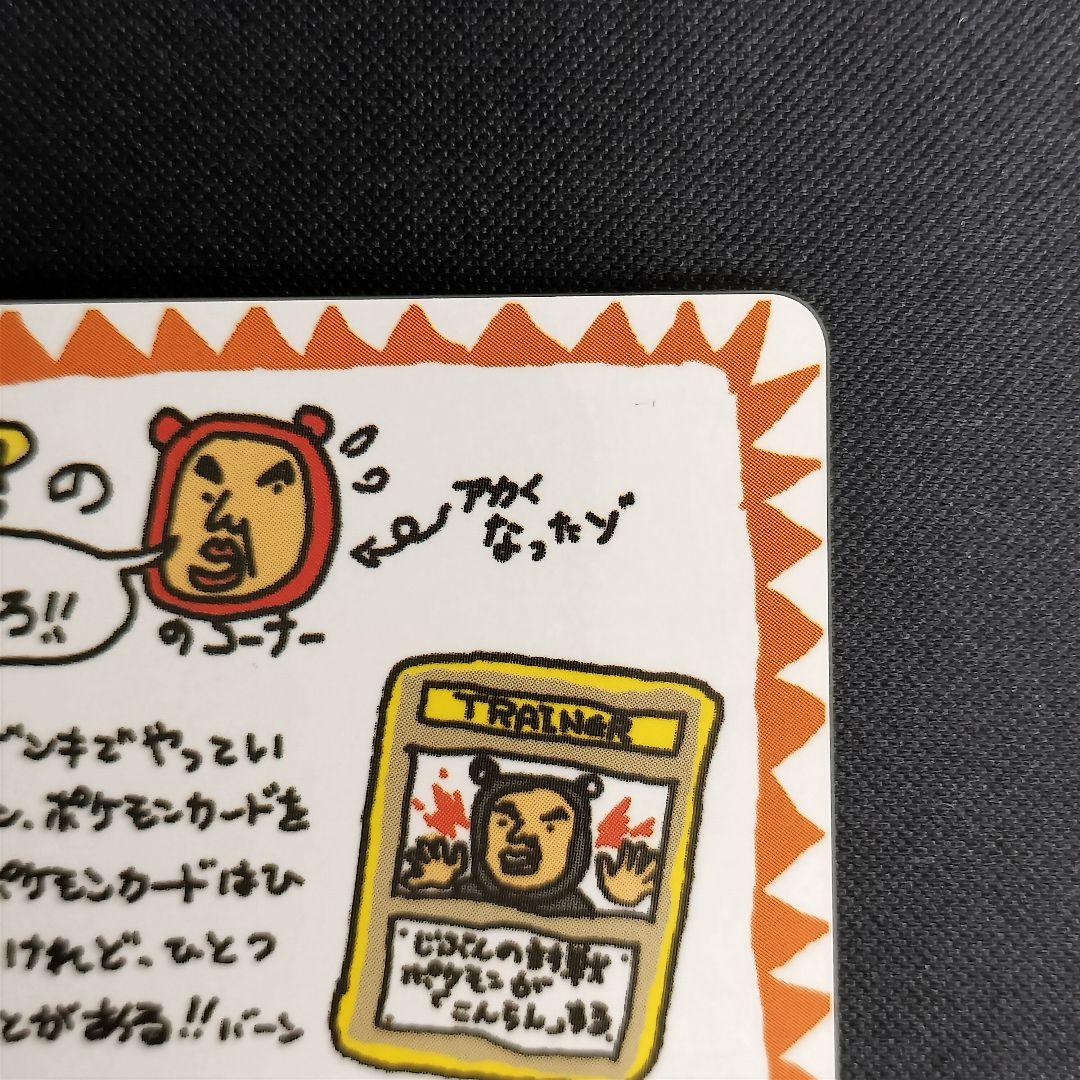 の
ろ!!
アカく
なったゾ
のコーナー
TRAINER
ンキでやってい
ン、ポケモンカードを
ポケモンカードはひ
けれど、ひとつ
とがある!!バーン
じぶんの対戦
ポケモンが
「こんらん」する